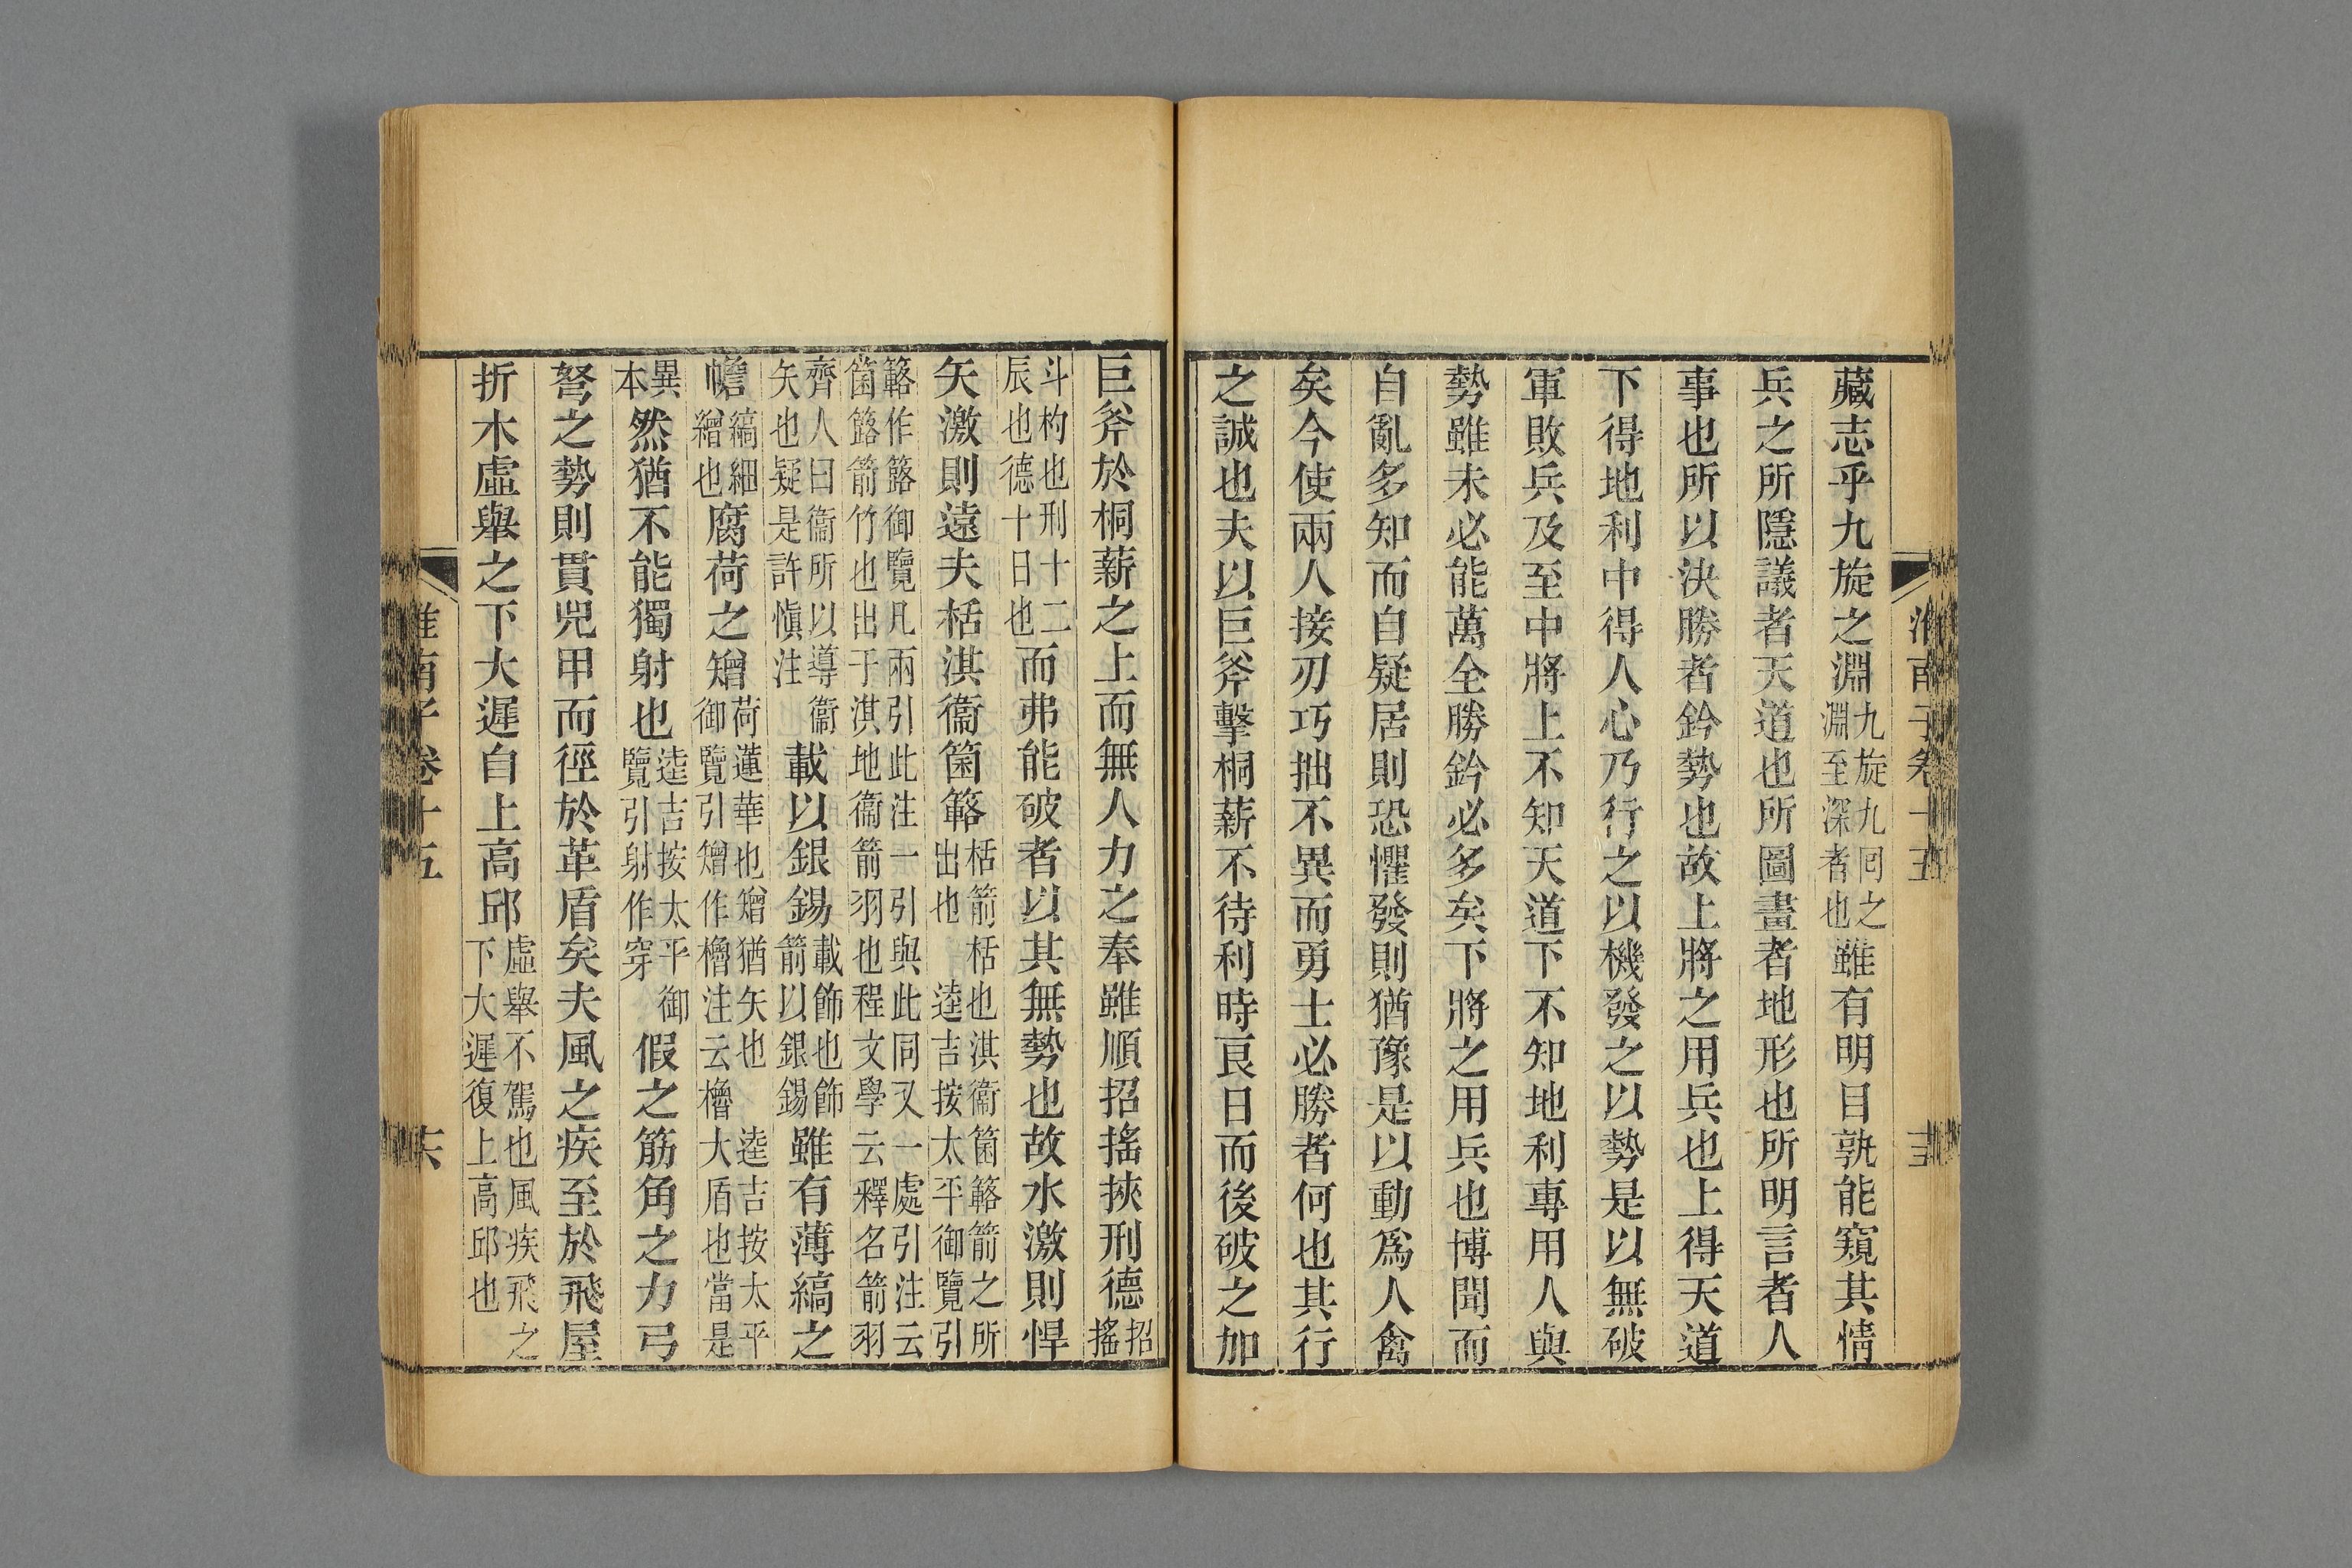 藏志乎九旋之淵九旋九回之淵至深者也雖有明目孰能窺其情
兵之所隱議者天道也所圖畫者地形也所明言者人
事也所以決勝者鈐勢也故上將之用兵也上得天道
下得地利中得人心乃行之以機發之以勢是以無破
軍敗兵及至中將上不知天道下不知地利專用人與
勢雖未必能萬全勝鈐必多矣下將之用兵也博聞而
自亂多知而自疑居則恐懼發則猶豫是以動爲人禽
矣今使兩人接刃巧拙不異而勇士必勝者何也其行
之誠也夫以巨斧擊桐薪不待利時良日而後破之加
巨斧於桐薪之上而無人力之奉雖順招搖挾刑德招搖
斗杓也刑十二辰也德十日也而弗能破者以其無勢也故水激則悍
矢激則遠夫栝淇衞箘簵栝箭栝也淇衞箘簵箭之所出也逵吉按太平御覽引
簵作簬御覽凡兩引此注一引與此同又一處引注云箘簬箭竹也出于淇地衞箭羽也程文學云釋名箭羽
齊人曰衞所以導衞矢也疑是許愼注載以銀錫載飾也飾箭以銀錫雖有薄縞之
幨縞細繒也腐荷之矰荷蓮華也矰猶矢也逵吉按太平御覽引矰作櫓注云櫓大盾也當是
異本然猶不能獨射也逵吉按太平御覽引射作穿假之筋角之力弓
弩之勢則貫兕甲而徑於革盾矣夫風之疾至於飛屋
折木虛舉之下大遲自上高邱虛舉不駕也風疾飛之下大遲復上高邱也
淮南子卷十五